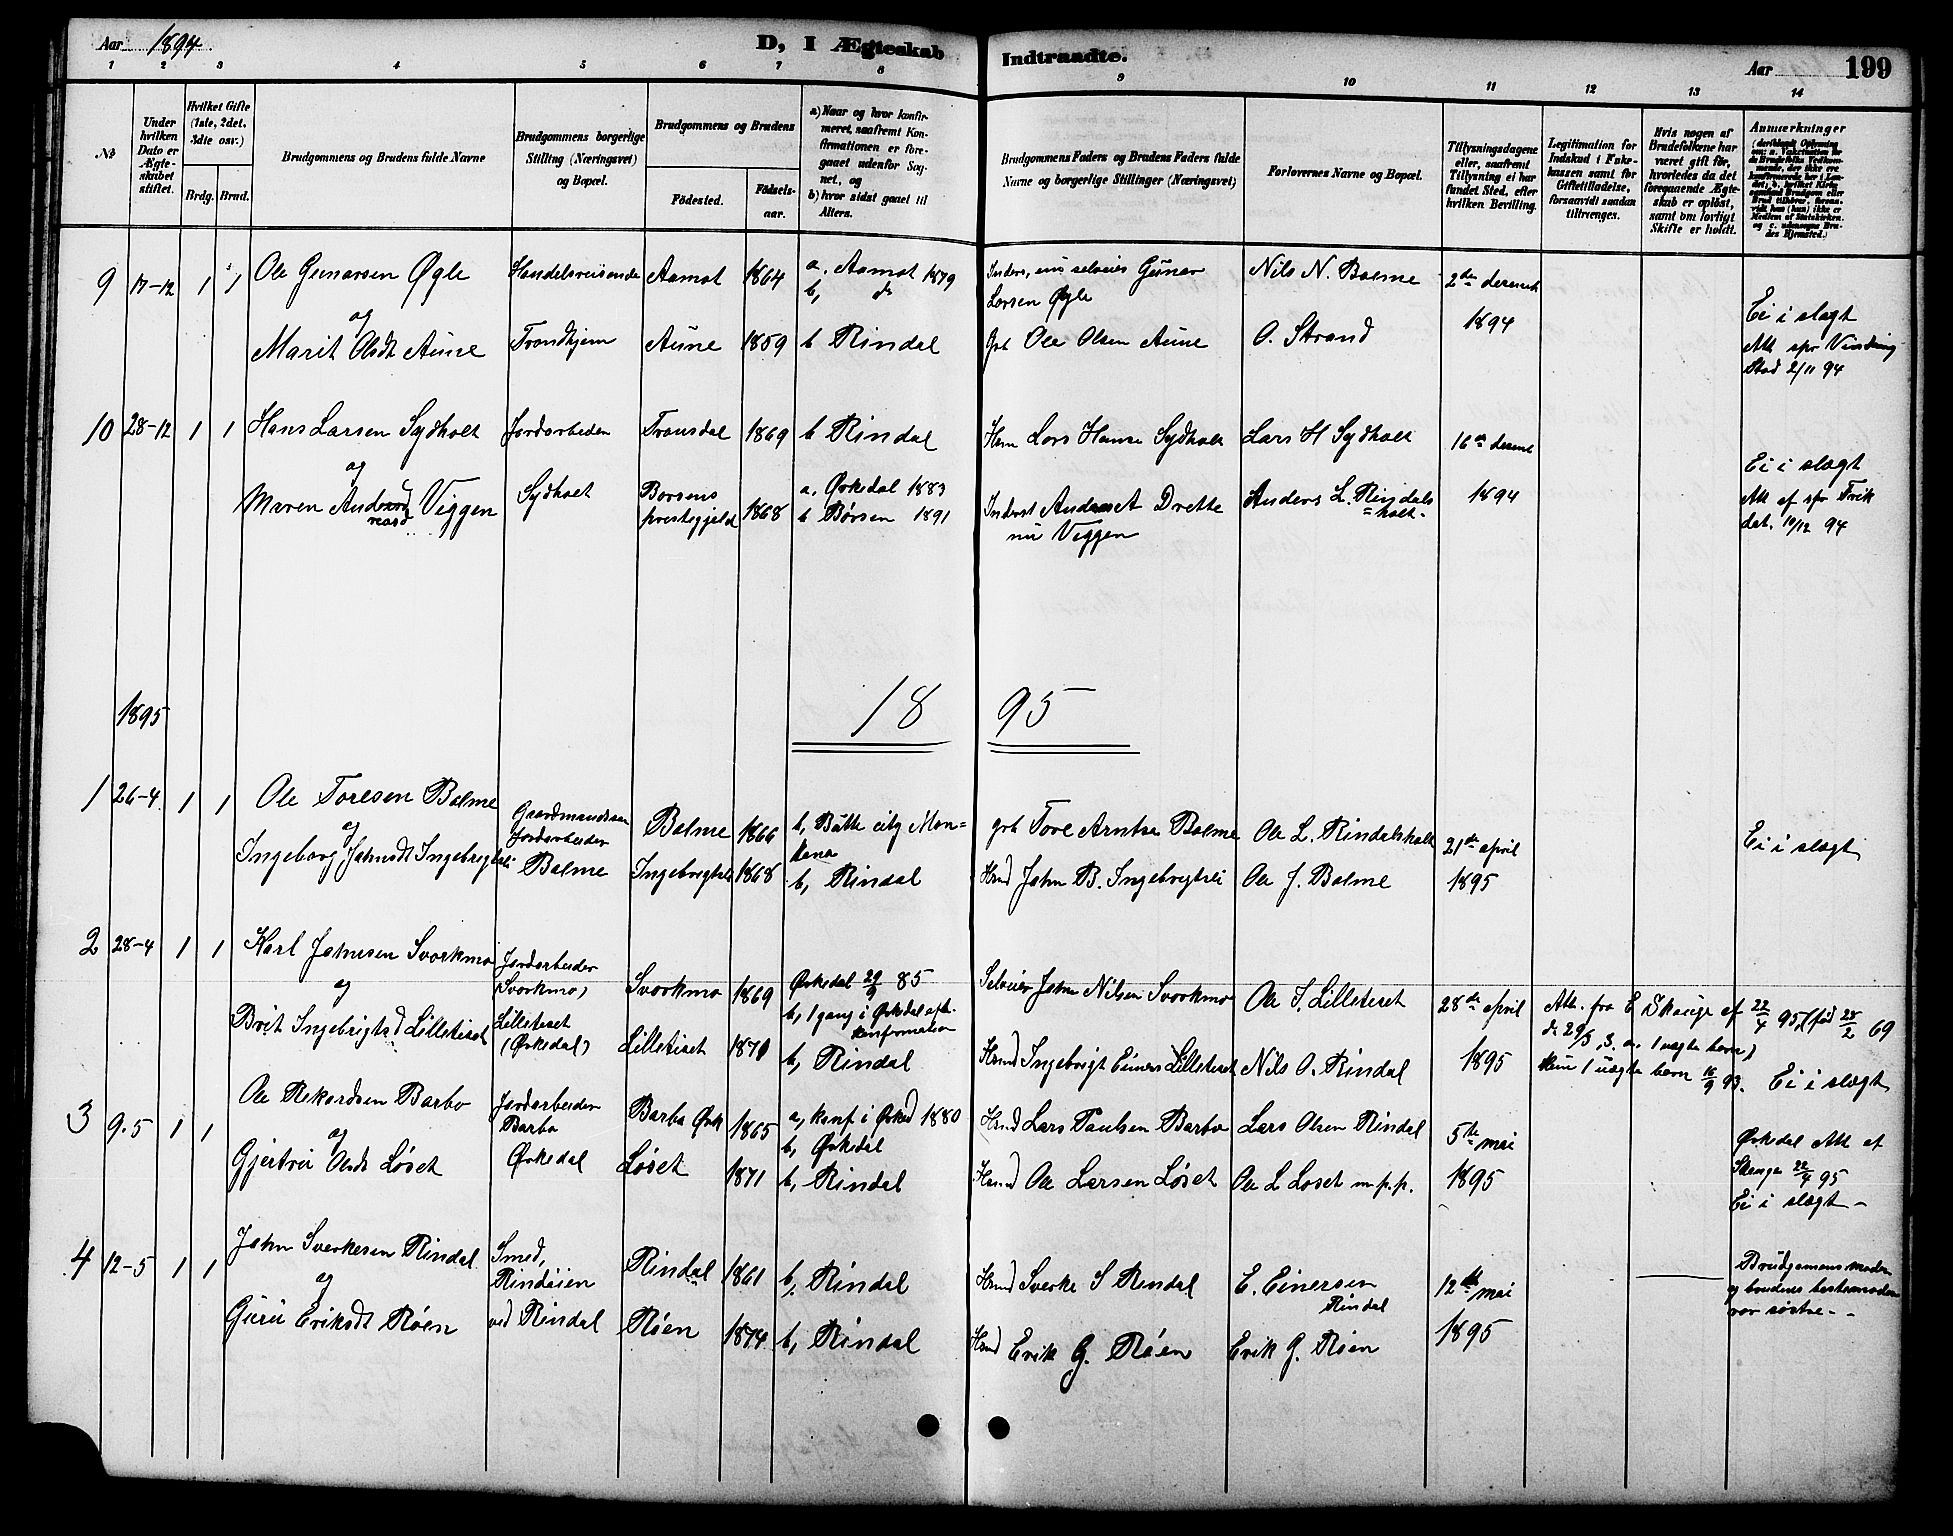 Aar 1894.
D, I Ægteskab Indtraadte.
Aar 199
1 2 3 4 5 6 7 8 9 10 11 12 13 14
No
Under hvilken Dato er Ægteskabet stiftet.
Hvilket Gifte (1ste, 2det, 3die osv.)
Brdg. Brud.
Brudgommens og Brudens fulde Navne
Brudgommens borgerlige Stilling (Næringsvei) og Bopæl.
Brudgommens og Brudens
Fødested.
Fødselsaar.
a) Naar og hvor konfirmeret, saafremt Konfirmationen er foregaaet udenfor Sognet, og
b) hvor sidst gaaet til Alters.
Brudgommens Faders og Brudens Faders fulde Navne og borgerlige Stillinger (Næringsvei)
Forlovernes Navne og Bopæl.
Tillysningsdagene eller, saafremt Tillysning ei har fundet Sted, efter hvilken Bevilling.
Legitimation for Indskud i Enkekassen samt for Giftetilladelse, forsaavidt saadan tiltrænges.
Hvis nogen af Brudefolkene har været gift før, hvorledes da det foregaaende Ægteskab er opløst, samt om lovligt Skifte er holdt.
Anmærkninger
9 17-12 1 1 Ole Gunarsen Øgle Handelsreisende Aamot 1864 a. Aamot 1879
b, do
Gunar Larsen Øgle
Nils N. Bolme 2den decemb
og
Marit Olsdt Aune Trondhjem Aune 1859 b Rindal Grb Ole Olsen Aune O. Strand 1894
Ei i slægt
Att spr
2/11 94
10 28-12 1 1 Hans Larsen Sydholt Jordarbeider 1869 b Rindal Lars Hansen Sydholt Lars H Sydholt 16de decemb
og
Maren Viggen Sydholt Borsens prestegjeld 1868 a. Ørkedal 1883
b Børsen 1891
Drette
nu Viggen
Anders L. Rindalsholt. 1894
Ei i slægt
Att af spr
dat. 10/12 94
1895
18 95
1 26-4 1 1 Ole Toresen Bolme Gaardmandssøn Jordarbeider Bolme 1866 b, Butte city Montana grb Tore Arntsen Bolme Ole L. Rindalsholt 21de april
og
Ingeborg Johnsdt Ingebrigtsli Bolme Ingebrigtsli 1868 b, Rindal John B. Ingebrigtsli Ole J. Bolme 1895
Ei i slægt
2 28-4 1 1 Karl Johnsen Svorkmo Jordarbeider (Svorkmo) Svorkmo 1869 Ørkedal 29/9 85
b, 1 gang i Ørkedal efter konfirmation
Selveier John Nilsen Svorkmo Ole I. Lilletiset 28de april
og
Brit Ingebrigtsd Lilletiset Lilletiset (Ørkedal) Lilletiset 1870 b, Rindal Ingebrigt Einers Lilletiset Nils O. Rindal 1895
Att. fra E Skauge af 22/4 95, (fød 28/2 69
1 uægte barn 16/9 93. Ei i slægt
3 9.5 1 1 Ole Rikardsen Barbo Jordarbeider Barbo Barbo Ørk 1865 a, konf i Ørked 1880
b, Ørkedal
Lars Paulsen Barbo Lars Olsen Rindal 5te mai
og
Gjertrui Olsdt Løset Ørkedal Løset 1871 b, Rindal Ole Larsen Løset Ole L Løset m.p.p. 1895
Ørkedal Att af
Skauge 22/4 95
Ei i slægt -
4 12-5 1 1 John Sverkesen Rindal Smed, Rindal 1861 b, Rindal Sverke S Rindal E. Einersen Rindal 12te mai
og
Guru Eriksdt Røen Rindøien ved Rindal Røen 1874 b, Rindal Erik G. Røen Erik G. Røen 1895
Brudgomens moder
og brudens bestemoder
var søstre -